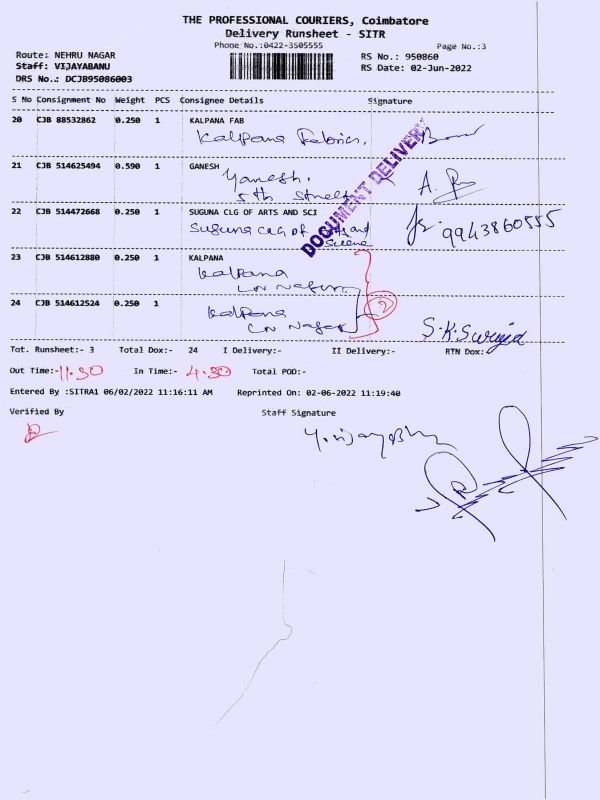 THE PROFESSIONAL COURIERS, Coimbatore
Delivery Runsheet - SITR
Phone No.:0422-3505555 Page No.:3
Route: NEHRU NAGAR RS No.: 950860
Staff: VIJAYABANU RS Date: 02-Jun-2022
DRS No.: DCJB95086003
S No Consignment No Weight PCS Consignee Details Signature
20 CJB 88532862 0.250 1 KALPANA FAB
Kalpana Fabrics.
21 CJB 514625494 0.590 1 GANESH
Ganesh.
5th Street
22 CJB 514472668 0.250 1 SUGUNA CLG OF ARTS AND SCI
Suguna CLG of Arts and
9943860555
DOCUMENT DELIVERY
23 CJB 514612880 0.250 1 KALPANA
Kalpana
LN Nagar
2
24 CJB 514612524 0.250 1
Kalpana
LN Nagar
S.K.
Tot. Runsheet:- 3 Total Dox:- 24 I Delivery:- II Delivery:- RTN Dox:-
Out Time:- 11.30 In Time:- 4.30 Total POD:-
Entered By :SITRA1 06/02/2022 11:16:11 AM Reprinted On: 02-06-2022 11:19:40
Verified By Staff Signature